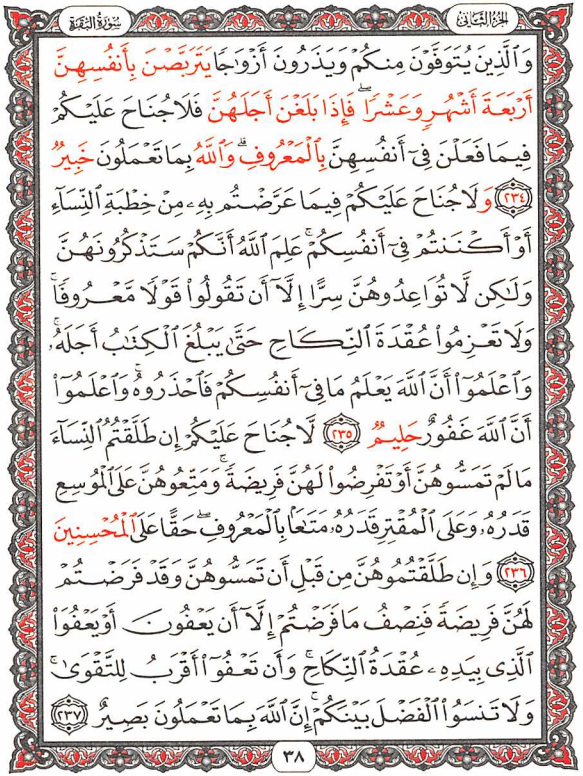 الجزء الثاني
سورة البقرة
وَٱلَّذِينَ يُتَوَفَّوْنَ مِنكُمْ وَيَذَرُونَ أَزْوَٰجًا يَتَرَبَّصْنَ بِأَنفُسِهِنَّ
أَرْبَعَةَ أَشْهُرٍ وَعَشْرًا ۖ فَإِذَا بَلَغْنَ أَجَلَهُنَّ فَلَا جُنَاحَ عَلَيْكُمْ
فِيمَا فَعَلْنَ فِىٓ أَنفُسِهِنَّ بِٱلْمَعْرُوفِ ۗ وَٱللَّهُ بِمَا تَعْمَلُونَ خَبِيرٌ
٢٣٤ وَلَا جُنَاحَ عَلَيْكُمْ فِيمَا عَرَّضْتُم بِهِۦ مِنْ خِطْبَةِ ٱلنِّسَآءِ
أَوْ أَكْنَنتُمْ فِىٓ أَنفُسِكُمْ ۚ عَلِمَ ٱللَّهُ أَنَّكُمْ سَتَذْكُرُونَهُنَّ
وَلَٰكِن لَّا تُوَاعِدُوهُنَّ سِرًّا إِلَّآ أَن تَقُولُوا۟ قَوْلًا مَّعْرُوفًا ۚ
وَلَا تَعْزِمُوا۟ عُقْدَةَ ٱلنِّكَاحِ حَتَّىٰ يَبْلُغَ ٱلْكِتَٰبُ أَجَلَهُۥ ۚ
وَٱعْلَمُوٓا۟ أَنَّ ٱللَّهَ يَعْلَمُ مَا فِىٓ أَنفُسِكُمْ فَٱحْذَرُوهُ ۚ وَٱعْلَمُوٓا۟
أَنَّ ٱللَّهَ غَفُورٌ حَلِيمٌ ٢٣٥ لَّا جُنَاحَ عَلَيْكُمْ إِن طَلَّقْتُمُ ٱلنِّسَآءَ
مَا لَمْ تَمَسُّوهُنَّ أَوْ تَفْرِضُوا۟ لَهُنَّ فَرِيضَةً ۚ وَمَتِّعُوهُنَّ عَلَى ٱلْمُوسِعِ
قَدَرُهُۥ وَعَلَى ٱلْمُقْتِرِ قَدَرُهُۥ مَتَٰعًۢا بِٱلْمَعْرُوفِ ۖ حَقًّا عَلَى ٱلْمُحْسِنِينَ
٢٣٦ وَإِن طَلَّقْتُمُوهُنَّ مِن قَبْلِ أَن تَمَسُّوهُنَّ وَقَدْ فَرَضْتُمْ
لَهُنَّ فَرِيضَةً فَنِصْفُ مَا فَرَضْتُمْ إِلَّآ أَن يَعْفُونَ أَوْ يَعْفُوَا۟
ٱلَّذِى بِيَدِهِۦ عُقْدَةُ ٱلنِّكَاحِ ۚ وَأَن تَعْفُوٓا۟ أَقْرَبُ لِلتَّقْوَىٰ ۚ
وَلَا تَنسَوُا۟ ٱلْفَضْلَ بَيْنَكُمْ ۚ إِنَّ ٱللَّهَ بِمَا تَعْمَلُونَ بَصِيرٌ ٢٣٧
٣٨